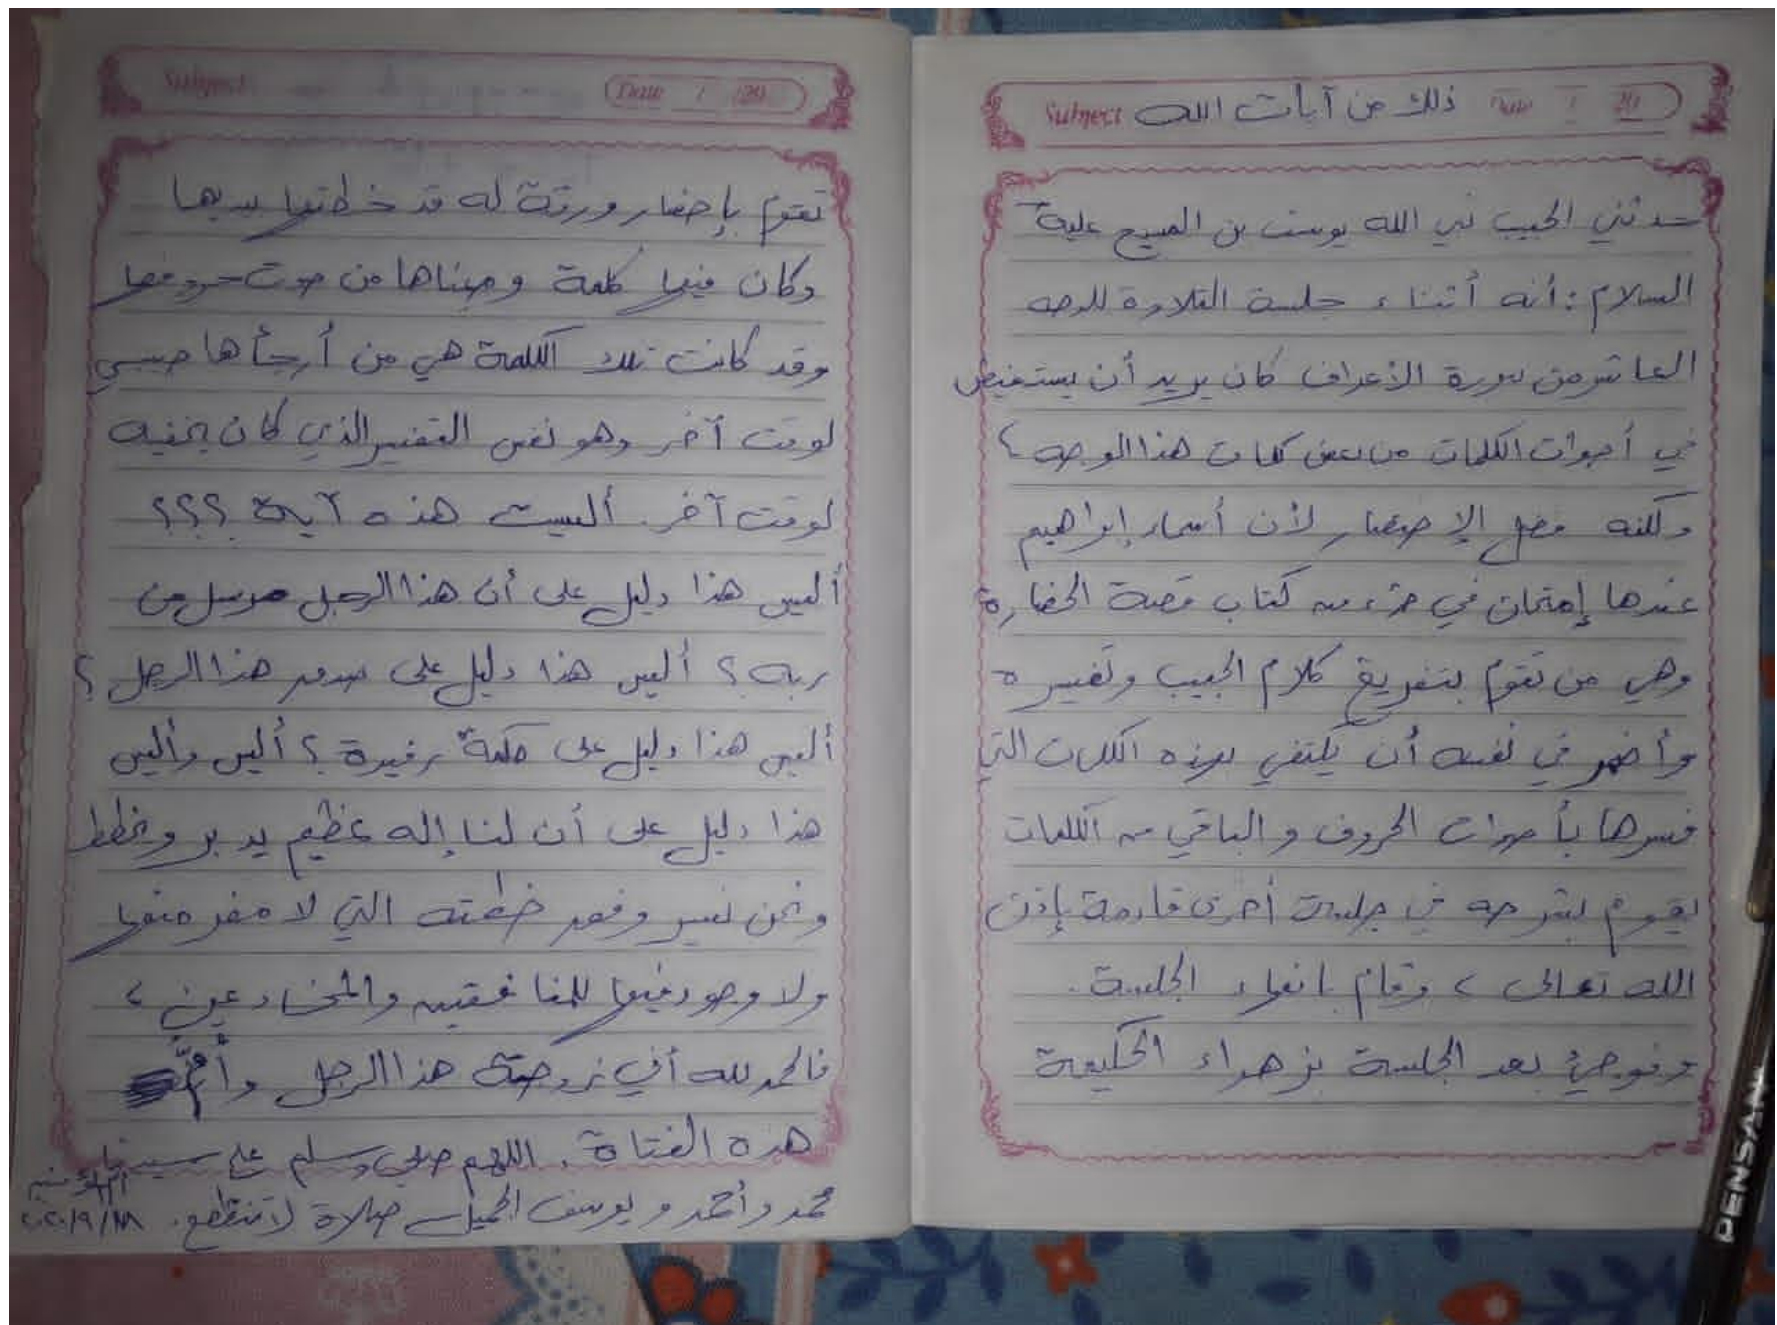 Subject ذلك من آيات الله Date / 20
حدثني الحبيب نبي الله يوسف بن المسيح عليه
السلام : أنه أثناء جلسة التلاوة للوجه
العاشر من سورة الأعراف كان يريد أن يستفيض
في أصوات الكلمات من بعض كلمات هذا الوجه ،
ولكنه فضل الإختصار لأن أسماء إبراهيم
عندها إمتحان في جزء من كتاب قصة الحضارة
وهي من تقوم بتفريغ كلام الحبيب وتفسيره
وأضمر في نفسه أن يكتفي بهذه الكلمات التي
فسرها بأصوات الحروف والباقي من الكلمات
يقوم بشرحه في جلسة أخرى قادمة بإذن
الله تعالى ، وقام بإنهاء الجلسة .
وفوجئ بعد الجلسة بزهراء الحكيمة
Subject Date / 20
تقوم بإحضار ورقة له قد خطتها بيديها
وكان فيها كلمة ومعناها من صوت حروفها
وقد كانت تلك الكلمة هي من أرجأها حبيبي
لوقت آخر وهو نفس التفسير الذي كان يخفيه
لوقت آخر . أليست هذه آية ؟؟؟
أليس هذا دليل على أن هذا الرجل مرسل من
ربه ؟ أليس هذا دليل على صدق هذا الرجل ؟
أليس هذا دليل على حكمة رفيدة ؟ أليس وأليس
هذا دليل على أن لنا إله عظيم يدبر ويخطط
ونحن نسير وفق خطته التي لا مفر منها
ولا وجود فيها للمنافقين والمخادعين ،
فالحمد لله أني زوجة هذا الرجل وأُمُّ
هذه الفتاة . اللهم صلي وسلم على سيدنا
محمد وأحمد ويوسف الجميل صلاة لا تنقطع .
أم المؤمنين
PENSAN